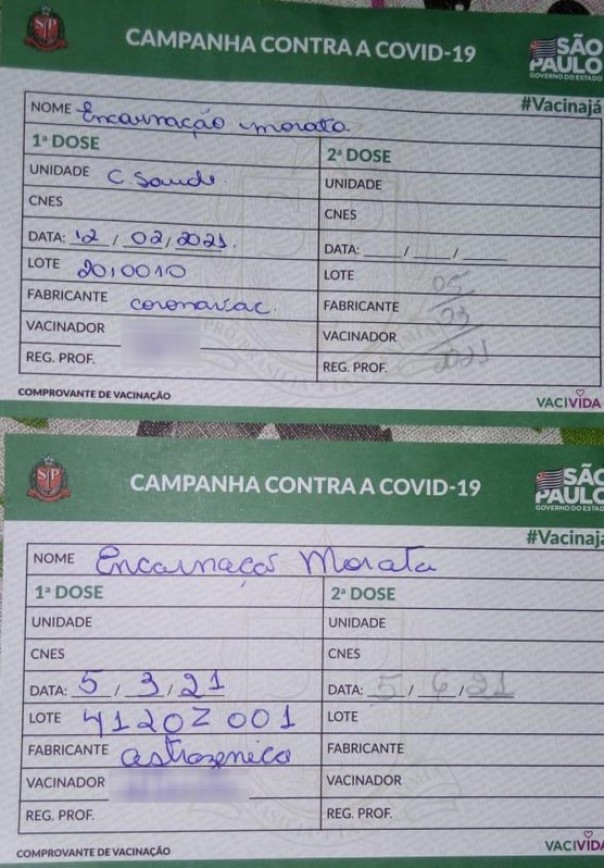 SP
CAMPANHA CONTRA A COVID-19
SÃO PAULO
GOVERNO DO ESTADO
#Vacinajá
NOME Encarnação morata
1ª DOSE 2ª DOSE
UNIDADE C. Saude UNIDADE
CNES CNES
DATA: 12 / 02 / 2021. DATA: / /
LOTE 2010010 LOTE 05/
FABRICANTE coronavac. FABRICANTE 03/
VACINADOR VACINADOR 2021
REG. PROF. REG. PROF.
COMPROVANTE DE VACINAÇÃO VACIVIDA
SP
CAMPANHA CONTRA A COVID-19
SÃO PAULO
GOVERNO DO ESTADO
#Vacinajá
NOME Encarnacas Morata
1ª DOSE 2ª DOSE
UNIDADE UNIDADE
CNES CNES
DATA: 5 / 3 / 21 DATA: 5 / 6 / 21
LOTE 4120Z001 LOTE
FABRICANTE astrozenica FABRICANTE
VACINADOR VACINADOR
REG. PROF. REG. PROF.
COMPROVANTE DE VACINAÇÃO VACIVIDA